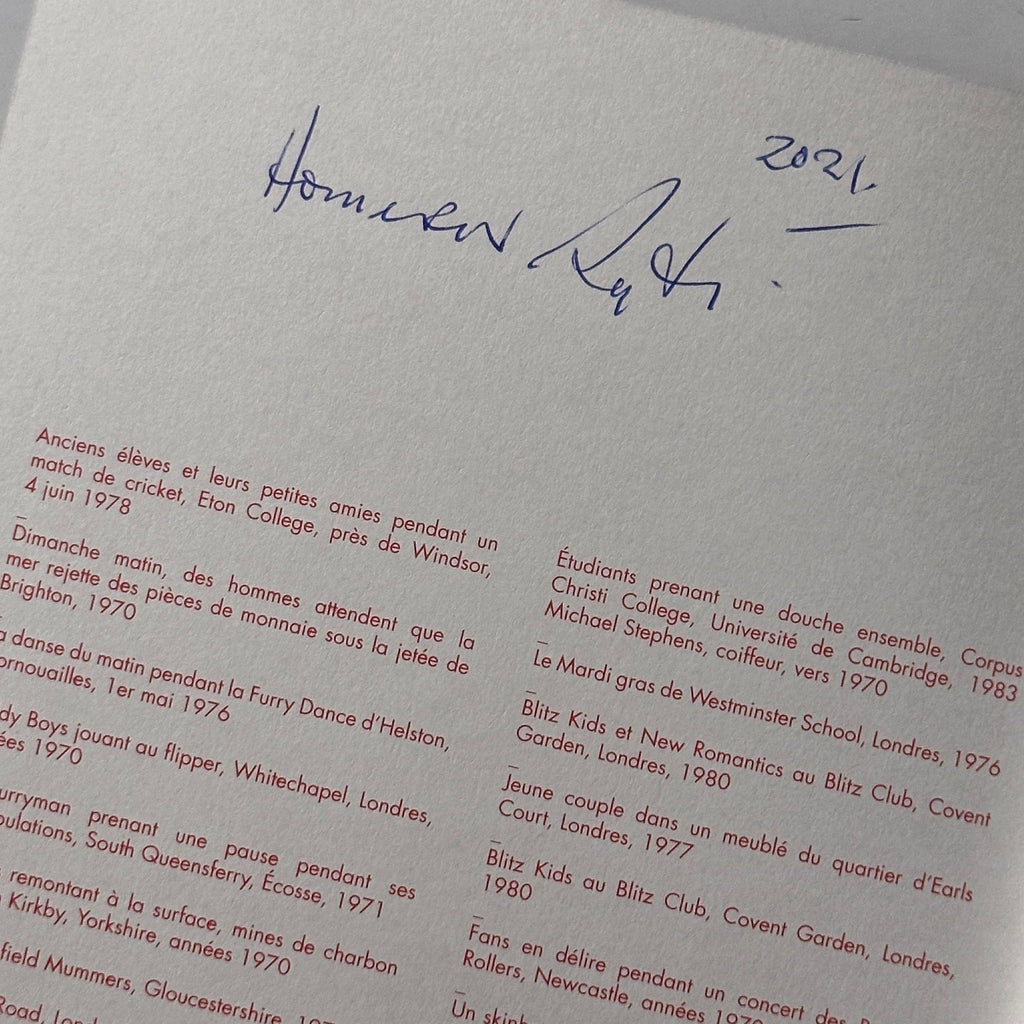 2021.
Homer Sykes
Anciens élèves et leurs petites amies pendant un
match de cricket, Eton College, près de Windsor,
4 juin 1978
–
Dimanche matin, des hommes attendent que la
mer rejette des pièces de monnaie sous la jetée de
Brighton, 1970
a danse du matin pendant la Furry Dance d'Helston,
ornouailles, 1er mai 1976
dy Boys jouant au flipper, Whitechapel, Londres,
ées 1970
urryman prenant une pause pendant ses
bulations, South Queensferry, Écosse, 1971
remontant à la surface, mines de charbon
Kirkby, Yorkshire, années 1970
field Mummers, Gloucestershire,
Road,
Étudiants prenant une douche ensemble, Corpus
Christi College, Université de Cambridge, 1983
Michael Stephens, coiffeur, vers 1970
–
Le Mardi gras de Westminster School, Londres, 1976
–
Blitz Kids et New Romantics au Blitz Club, Covent
Garden, Londres, 1980
–
Jeune couple dans un meublé du quartier d'Earls
Court, Londres, 1977
–
Blitz Kids au Blitz Club, Covent Garden, Londres,
1980
–
Fans en délire pendant un concert des
Rollers, Newcastle, années 1970
–
Un